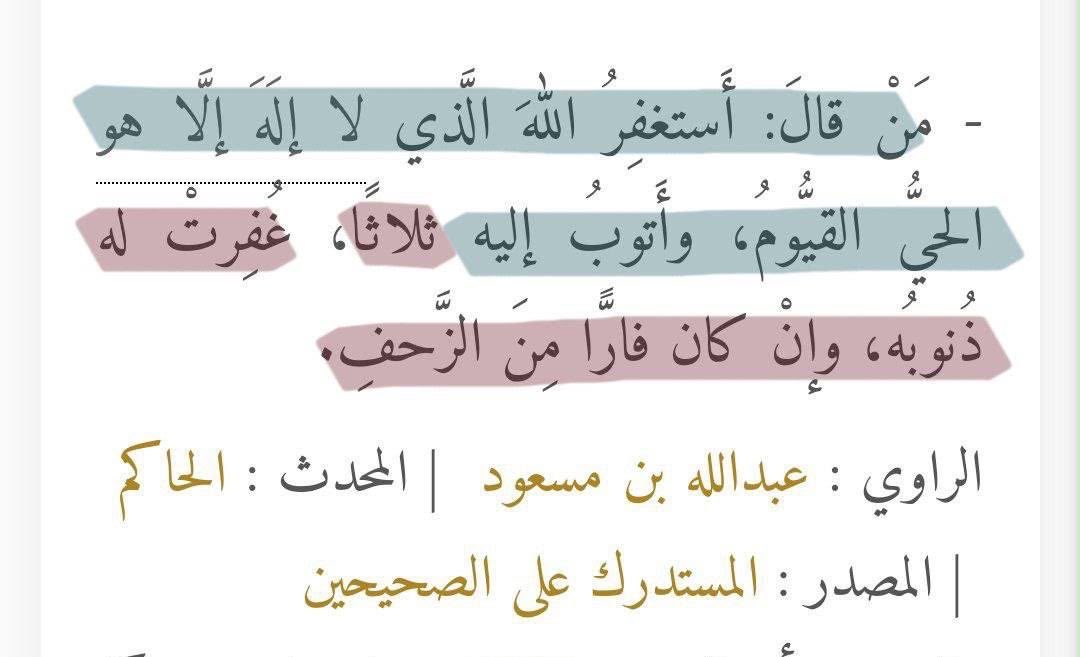 - مَنْ قالَ: أَستغفِرُ اللهَ الَّذي لا إلهَ إلَّا هو
الحيُّ القيُّومُ، وأَتوبُ إليه ثلاثًا، غُفِرتْ له
ذُنوبُه، وإنْ كان فارًّا مِنَ الزَّحفِ.
الراوي : عبدالله بن مسعود | المحدث : الحاكم
| المصدر : المستدرك على الصحيحين